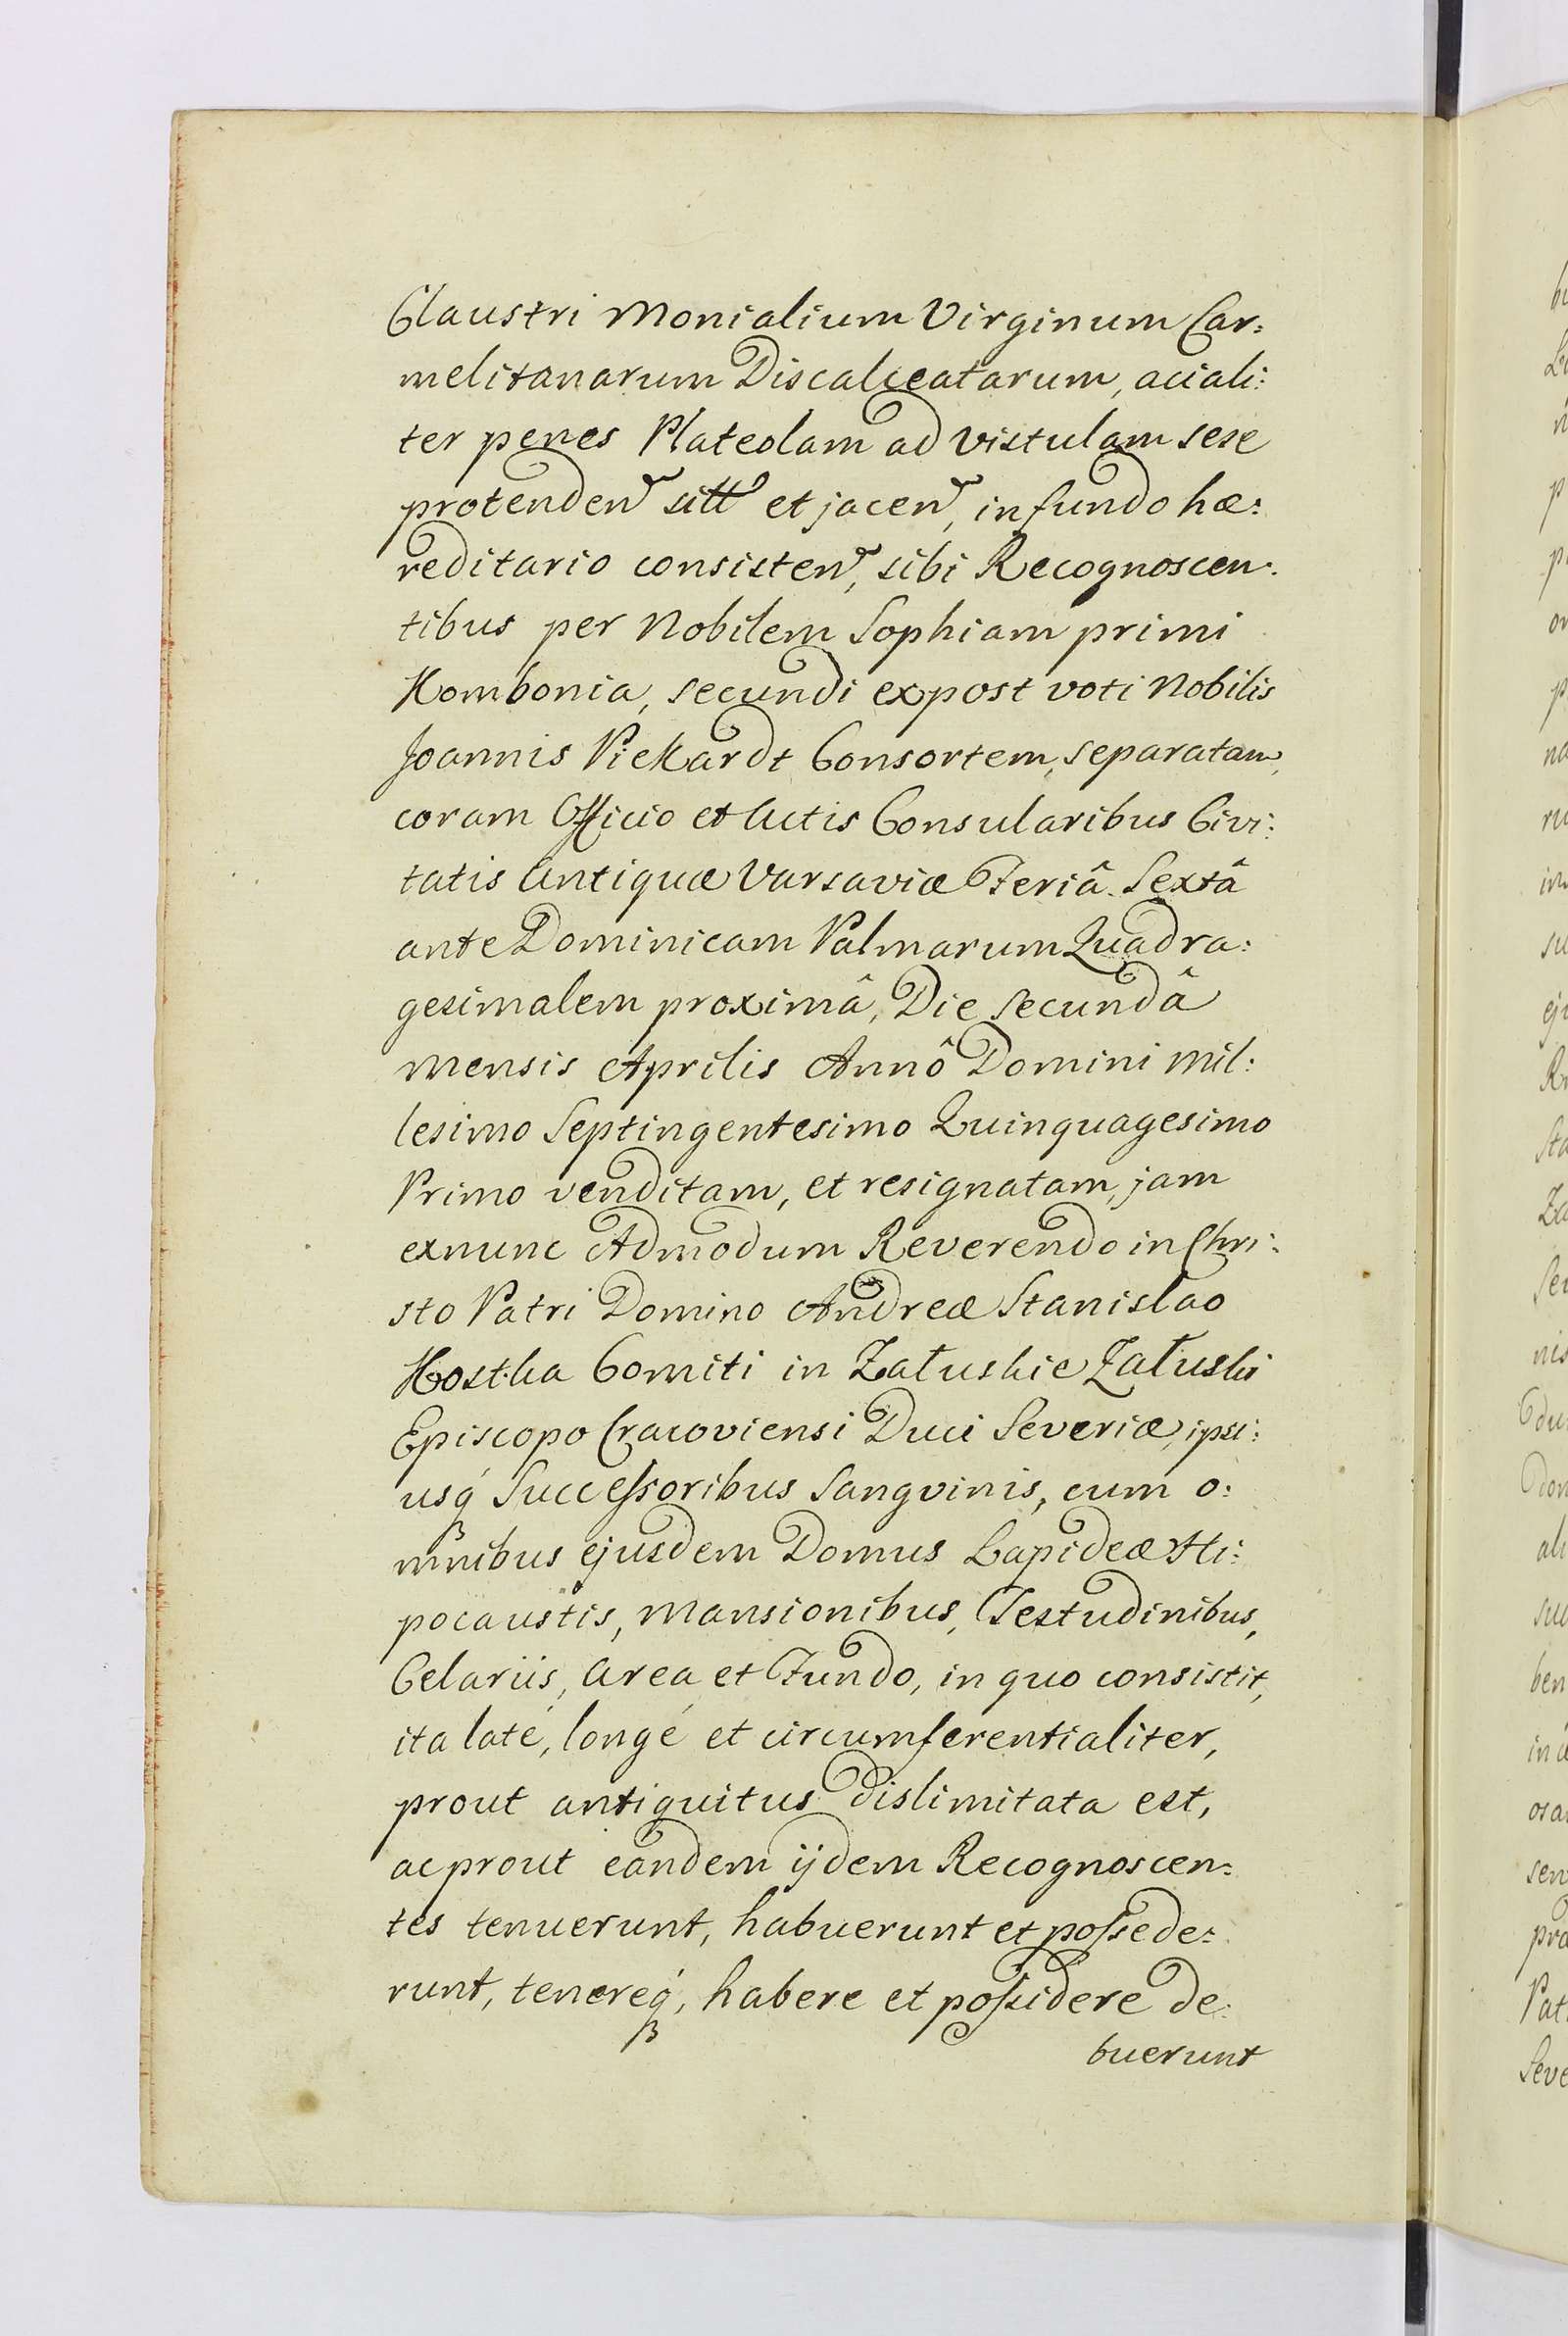 Claustri Monialium Virginum Car:
melitanarum Discalceatarum, aciali:
ter penes Plateolam ad Vistulam sese
protenden̄ sitt̄ et jacen̄, in fundo hæ:
reditario consisten̄, sibi Recognoscen:
tibus per Nobilem Sophiam primi
Kombonia, secundi expost voti Nobilis
Joannis Piekardt Consortem, separatam,
coram Officio et Actis Consularibus Civi:
tatis Antiquæ Varsaviæ Feriâ Sextâ
ante Dominicam Palmarum Quadra:
gesimalem proximâ, Die Secundâ
Mensis Aprilis Annô Domini Mil:
lesimo Septingentesimo Quinquagesimo
Primo venditam, et resignatam, jam
exnunc Admodum Reverendo in Chri:
sto Patri Domino Andreæ Stanislao
Kostka Comiti in Załuskie Załuski
Episcopo Cracoviensi Duci Severiæ, ipsi:
usq́ Successoribus Sangvinis, cum o:
mnibus ejusdem Domus Lapideæ Hi:
pocaustis, Mansionibus, Testudinibus,
Celariis, Area et Fundo, in quo consistit,
ita laté, longé et circumferentialiter,
prout antiquitus dislimitata est,
ac prout eandem ijdem Recognoscen:
tes tenuerunt, habuerunt et possede:
runt, tenereq́, habere et possidere de:
buerunt